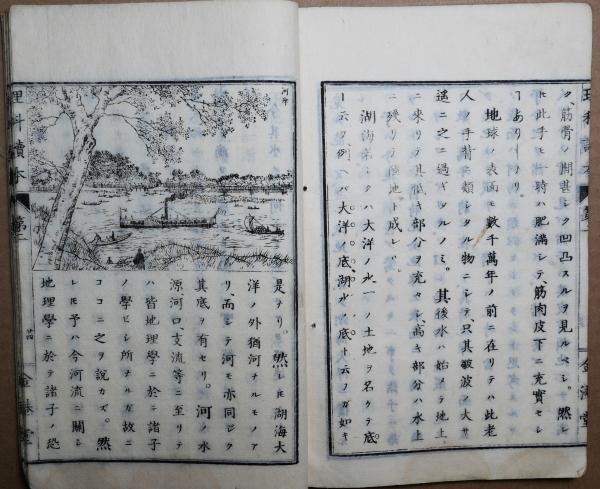 ク、筋骨ノ間甚シク凹凸スルヲ見ルベシ。然シ
ﾄﾞﾓ此手モ時ハ肥満シテ、筋肉皮下ニ充實セシ
ﾄアリシナリ
地球ノ表面モ數千萬年ノ前ニ在リテハ此老
人ノ手背ニ類シタル物ニシテ、只其皺波ノ大サ
遥ニ之ニ過ギタルノミ。其後水ハ始メテ地上
ニ来リテ其低キ部分ヲ充セシ、高キ部分ハ水上
ニ残リテ陸地ト成レリ
湖海若シクハ大洋ノ水下ノ土地ヲ名ケテ底
ト云ウ、例ヘバ大洋ノ底、湖水ノ底ト云フガ如キ
理科讀本
第一
金港堂
河舟
是ナリ。然レﾄﾞﾓ湖海大
洋ノ外猶河ナルモノア
リ、而シテ河モ亦同ジク
其底ヲ有セリ。河ノ水
源河口、支流等ニ至リテ
ハ皆地理學ニ於テ諸子
ノ學ビシ所ナルガ故ニ
ココニ之ヲ說カズ。然
レﾄﾞﾓ予ハ今河流ニ關シ
地理學ニ於テ諸子ノ恐
理科讀本
第一
廿四
金港堂